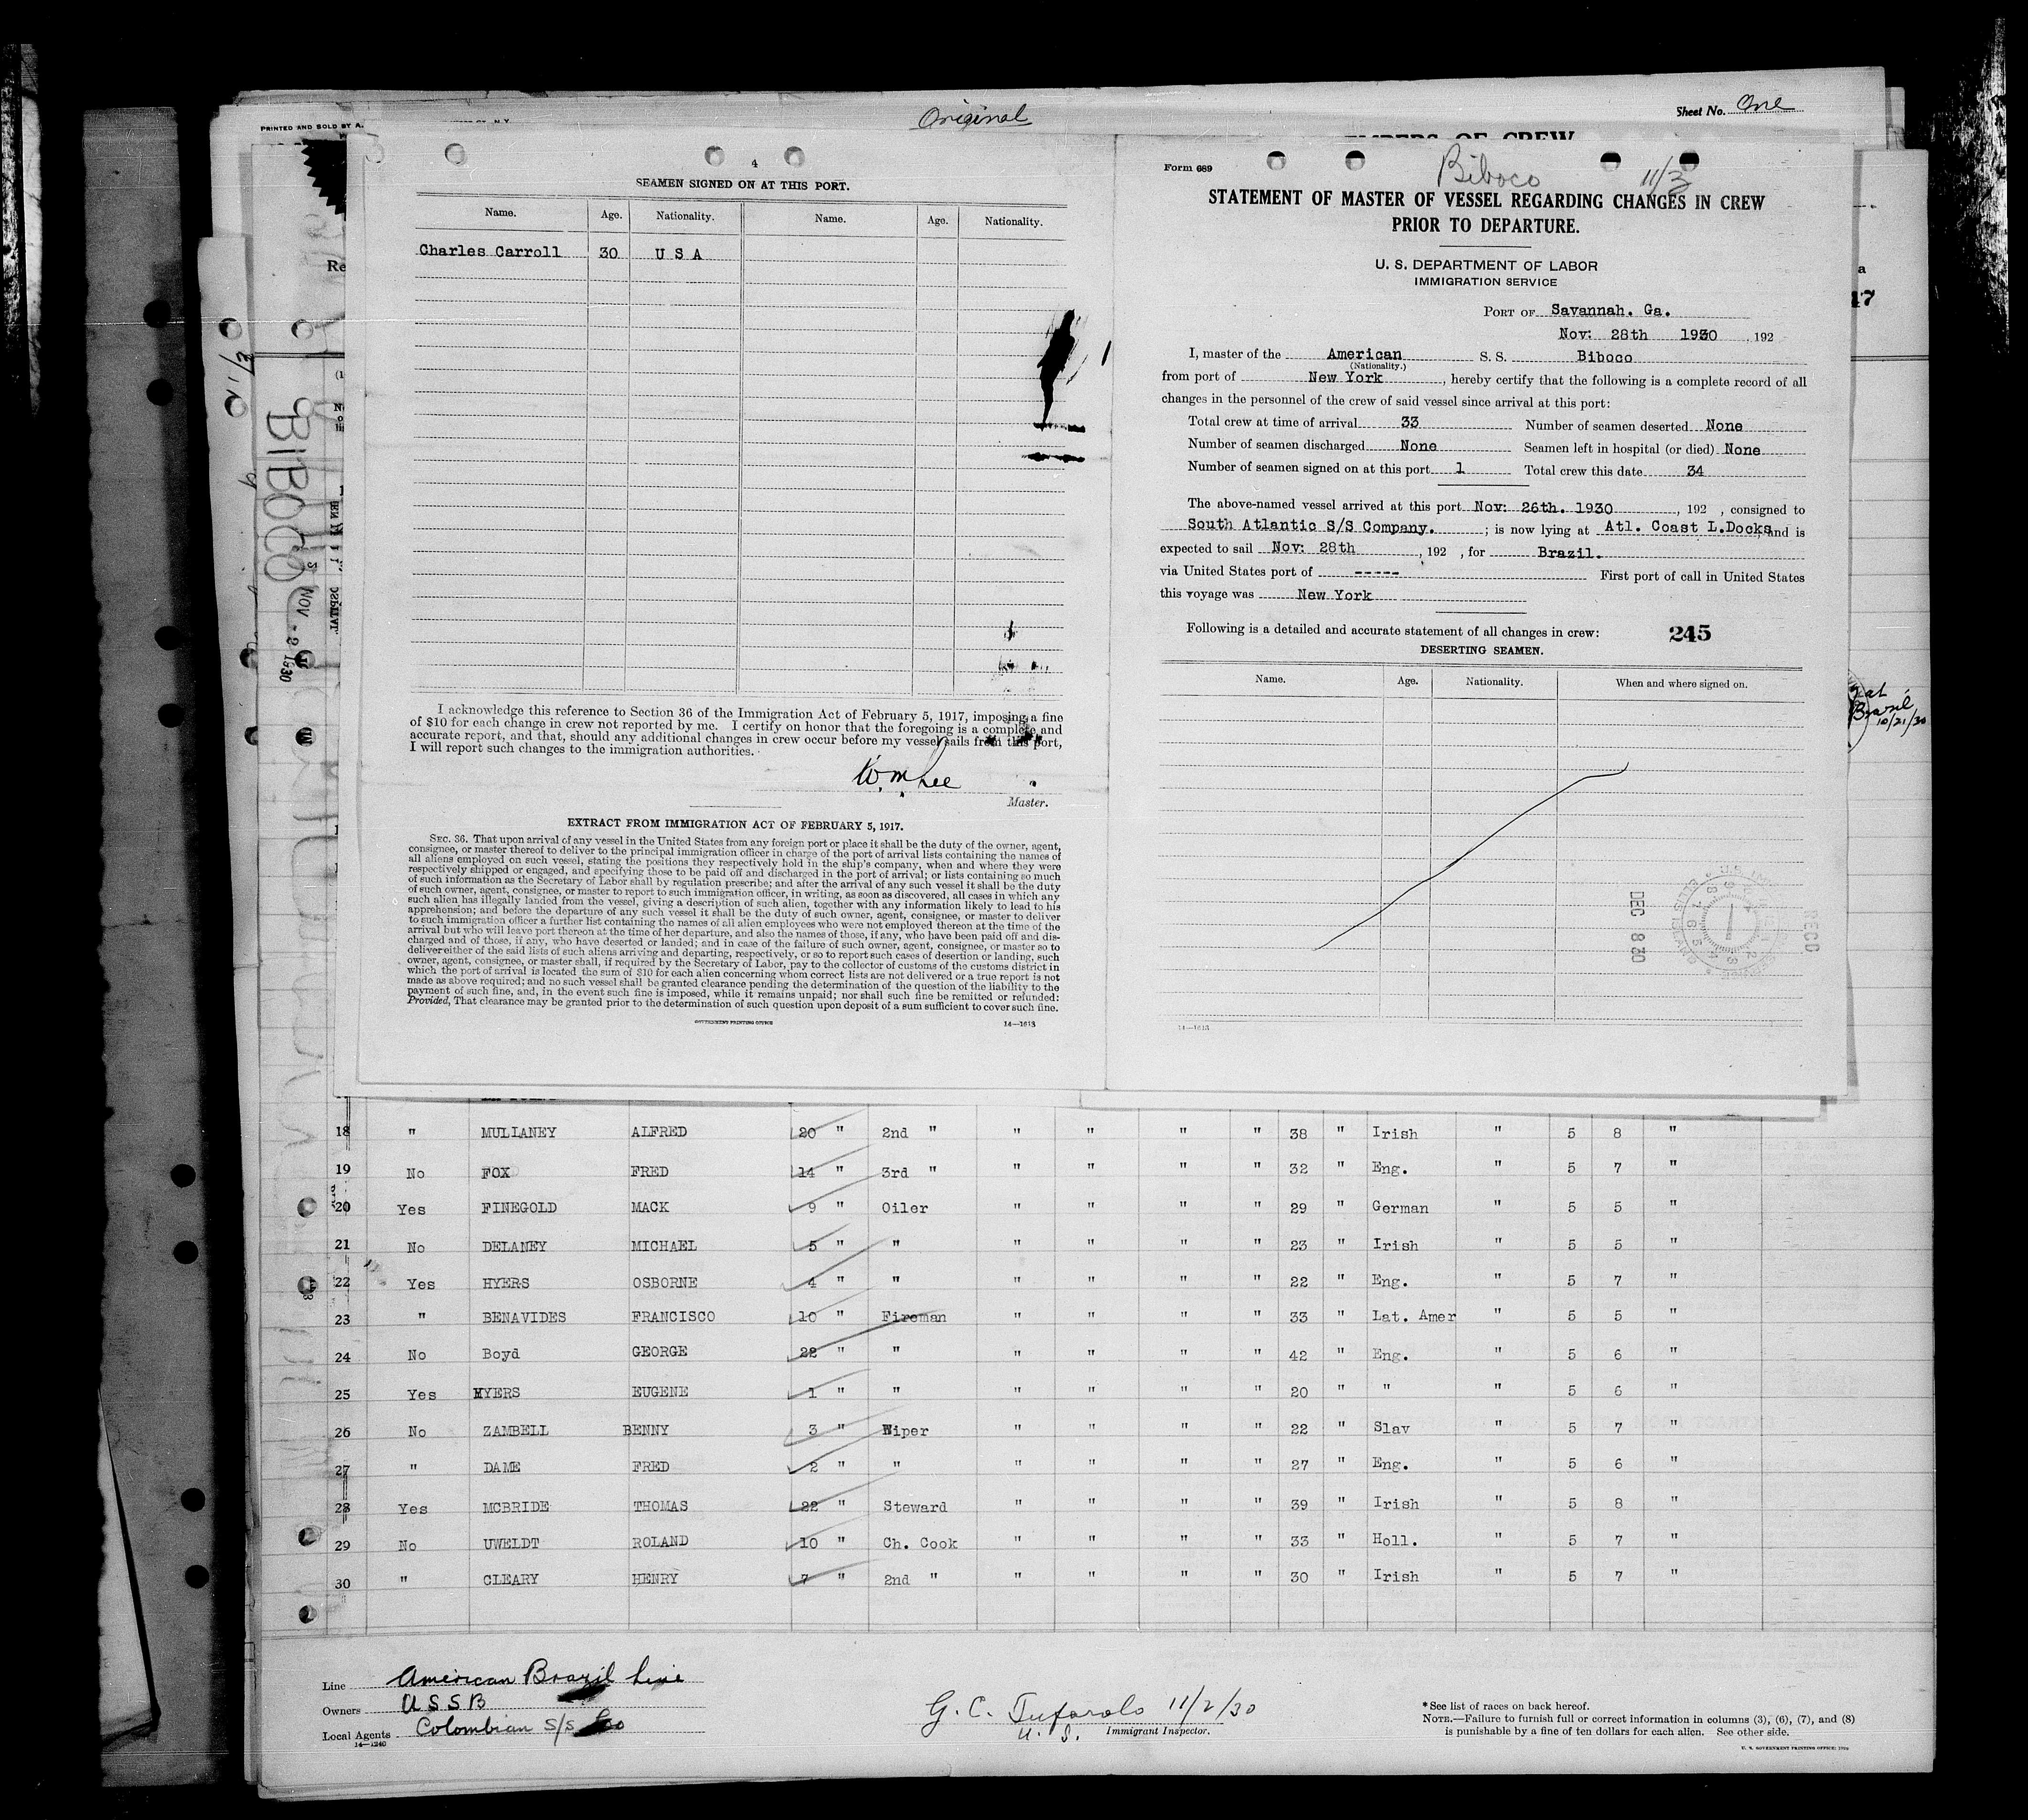 PRINTED AND SOLD BY A.
Original
Sheet No. One
4
SEAMEN SIGNED ON AT THIS PORT.
Name. Age. Nationality. Name. Age. Nationality.
Charles Carroll 30 U S A
I acknowledge this reference to Section 36 of the Immigration Act of February 5, 1917, imposing a fine
of $10 for each change in crew not reported by me. I certify on honor that the foregoing is a complete and
accurate report, and that, should any additional changes in crew occur before my vessel sails from this port,
I will report such changes to the immigration authorities.
Wm Lee
Master.
EXTRACT FROM IMMIGRATION ACT OF FEBRUARY 5, 1917.
SEC. 36. That upon arrival of any vessel in the United States from any foreign port or place it shall be the duty of the owner, agent,
consignee, or master thereof to deliver to the principal immigration officer in charge of the port of arrival lists containing the names of
all aliens employed on such vessel, stating the positions they respectively hold in the ship's company, when and where they were
respectively shipped or engaged, and specifying those to be paid off and discharged in the port of arrival; or lists containing so much
of such information as the Secretary of Labor shall by regulation prescribe; and after the arrival of any such vessel it shall be the duty
of such owner, agent, consignee, or master to report to such immigration officer, in writing, as soon as discovered, all cases in which any
such alien has illegally landed from the vessel, giving a description of such alien, together with any information likely to lead to his
apprehension; and before the departure of any such vessel it shall be the duty of such owner, agent, consignee, or master to deliver
to such immigration officer a further list containing the names of all alien employees who were not employed thereon at the time of the
arrival but who will leave port thereon at the time of her departure, and also the names of those, if any, who have been paid off and dis-
charged and of those, if any, who have deserted or landed; and in case of the failure of such owner, agent, consignee, or master so to
deliver either of the said lists of such aliens arriving and departing, respectively, or so to report such cases of desertion or landing, such
owner, agent, consignee, or master shall, if required by the Secretary of Labor, pay to the collector of customs of the customs district in
which the port of arrival is located the sum of $10 for each alien concerning whom correct lists are not delivered or a true report is not
made as above required; and no such vessel shall be granted clearance pending the determination of the question of the liability to the
payment of such fine, and, in the event such fine is imposed, while it remains unpaid; nor shall such fine be remitted or refunded:
Provided, That clearance may be granted prior to the determination of such question upon deposit of a sum sufficient to cover such fine.
GOVERNMENT PRINTING OFFICE 14—1613
Form 689
Biboco 11/3
STATEMENT OF MASTER OF VESSEL REGARDING CHANGES IN CREW
PRIOR TO DEPARTURE.
U. S. DEPARTMENT OF LABOR
IMMIGRATION SERVICE
PORT OF Savannah. Ga.
Nov: 28th 1930, 192
I, master of the American S. S. Biboco
(Nationality.)
from port of New York, hereby certify that the following is a complete record of all
changes in the personnel of the crew of said vessel since arrival at this port:
Total crew at time of arrival 33 Number of seamen deserted None
Number of seamen discharged None Seamen left in hospital (or died) None
Number of seamen signed on at this port 1 Total crew this date 34
The above-named vessel arrived at this port Nov: 26th. 1930, 192 , consigned to
South Atlantic S/S Company. ; is now lying at Atl. Coast L.Docks, and is
expected to sail Nov: 28th, 192 , for Brazil.
via United States port of ----- First port of call in United States
this voyage was New York
Following is a detailed and accurate statement of all changes in crew: 245
DESERTING SEAMEN.
Name. Age. Nationality. When and where signed on.
DEC 8 30
RECD
14—1613
BIBOCO
NOV - 2 1930
Brazil
10/21/30
18 " MULLANEY ALFRED 20 " 2nd " " " " " 38 " Irish " 5 8 "
19 No FOX FRED 14 " 3rd " " " " " 32 " Eng. " 5 7 "
20 Yes FINEGOLD MACK 9 " Oiler " " " " 29 " German " 5 5 "
21 No DELANEY MICHAEL 5 " " " " " " 23 " Irish " 5 5 "
22 Yes HYERS OSBORNE 4 " " " " " " 22 " Eng. " 5 7 "
23 " BENAVIDES FRANCISCO 10 " Fireman " " " " 33 " Lat. Amer " 5 5 "
24 No Boyd GEORGE 22 " " " " " " 42 " Eng. " 5 6 "
25 Yes HYERS EUGENE 1 " " " " " " 20 " " " 5 6 "
26 No ZAMBELL BENNY 3 " Wiper " " " " 22 " Slav " 5 7 "
27 " DAME FRED 2 " " " " " " 27 " Eng. " 5 6 "
28 Yes MCBRIDE THOMAS 22 " Steward " " " " 39 " Irish " 5 8 "
29 No UWELDT ROLAND 10 " Ch. Cook " " " " 33 " Holl. " 5 7 "
30 " CLEARY HENRY 7 " 2nd " " " " " 30 " Irish " 5 7 "
Line American Brazil Line
Owners U S S B
Local Agents Colombian S/S Co
14—1240
G. C. Tufarolo 11/2/30
U. S. Immigrant Inspector.
*See list of races on back hereof.
NOTE.—Failure to furnish full or correct information in columns (3), (6), (7), and (8)
is punishable by a fine of ten dollars for each alien. See other side.
U. S. GOVERNMENT PRINTING OFFICE: